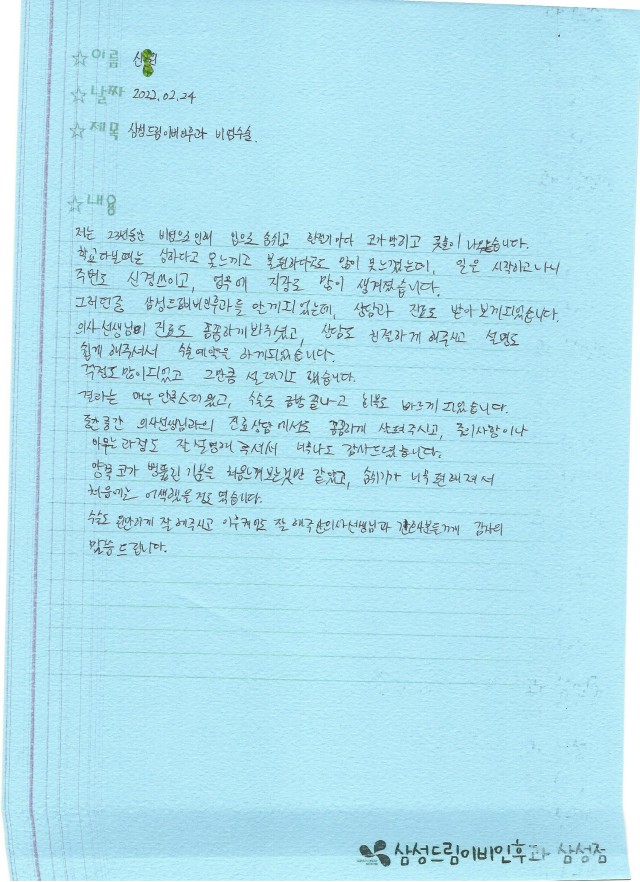 ☆이름 신
☆날짜 2022.02.24
☆제목 삼성드림이비인후과 비염수술.
☆내용
저는 23년동안 비염으로 인해 입으로 숨쉬고 환절기마다 코가 막히고 콧물이 나왔습니다.
학교다닐때는 심하다고 못느끼고 불편하다고도 많이 못느꼈는데, 일은 시작하고나니
주변도 신경쓰이고, 업무에 지장도 많이 생겨졌습니다.
그러던중 삼성드림이비인후과를 알게되었는데, 상담과 진료도 받아보게되었습니다.
의사선생님이 진료도 꼼꼼하게봐주셨고, 상담도 친절하게 해주시고 설명도
쉽게 해주셔서 수술예약을 하게되었습니다.
걱정도많이되었고 그만큼 설레기도 했습니다.
결과는 매우 만족스러웠고, 수술도 금방 끝나고 회복도 빠르게되었습니다.
중간중간 의사선생님과의 진료상담에서도 꼼꼼하게 살펴주시고, 주의사항이나
아무는과정도 잘 설명해 주셔서 너무나도 감사드렸습니다.
양쪽코가 뻥뚫린 기분을 처음느껴보는것만 같았고, 숨쉬기가 너무 편해져서
처음에는 어색했을정도 였습니다.
수술도 완만하게 잘 해주시고 이후케어도 잘 해주신의사선생님과 간호사분들께 감사의
말씀 드립니다.
삼성드림이비인후과 삼성점